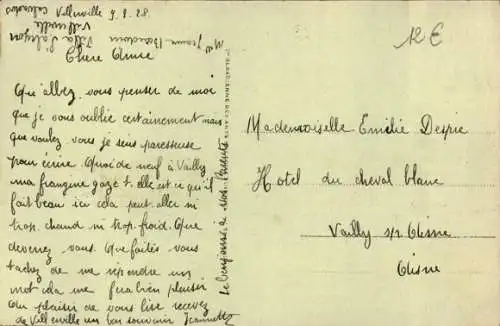 Villerville 9.9.28
Calvados
Villerville
Mlle Jeanne Villa
Chere Amie
Que allez vous penser de moi
que je vous oublie certainement mais
que voulez vous je suis paresseuse
pour écrire. Quoi de neuf à Vailly
ma frangine gaze t elle est ce qu'il
fait beau ici cela peut aller ni
trop chaud ni trop froid. Que
devenez vous. Que faites vous
tachez de me répondre un
mot cela me fera bien plaisir
Au plaisir de vous lire recevez
de Villerville un bon souvenir Jeannette
Le bonjour à vos Parents
12€
Mademoiselle Emilie Despie
Hotel du cheval blanc
Vailly s/r Aisne
Aisne